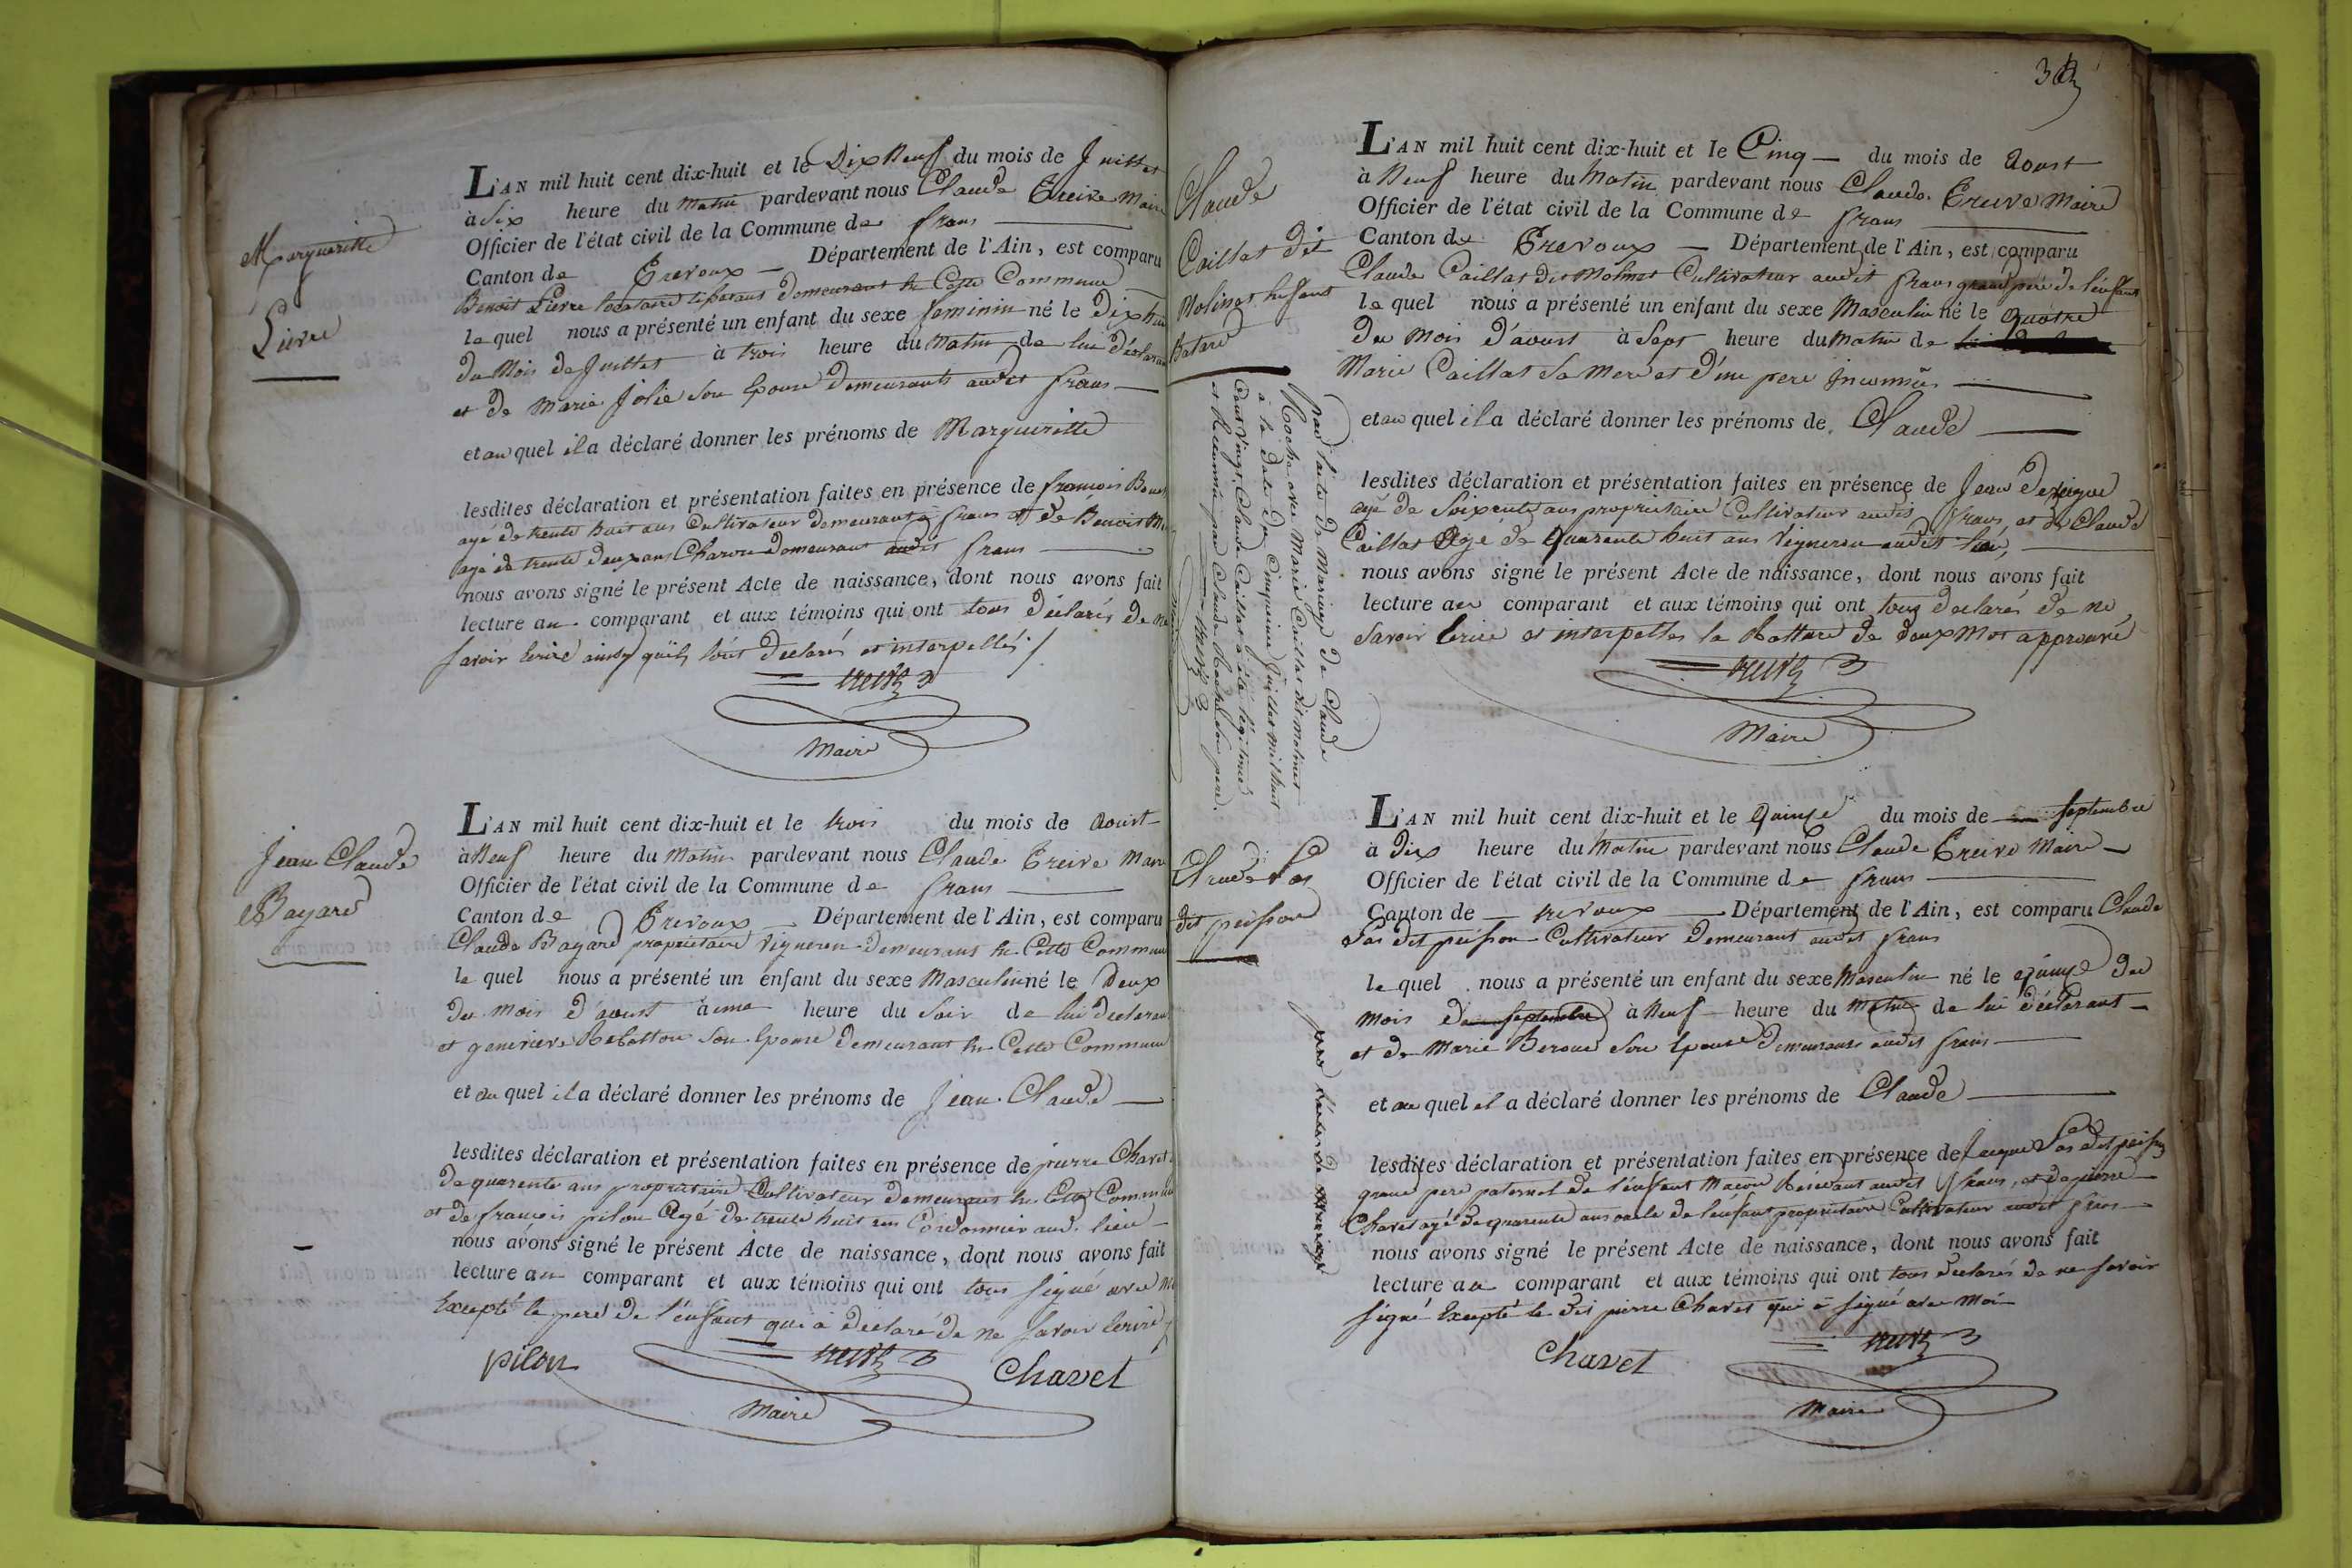 Margueritte
Livre
L'AN mil huit cent dix-huit et le Dix Neuf du mois de Juillet
à Six heure du Matin pardevant nous Claude Treive Maire
Officier de l'état civil de la Commune de frans
Canton de Trevoux Département de l'Ain, est comparu
Benoit Livre demeurant en Cette Commune
le quel nous a présenté un enfant du sexe feminin né le Dix huit
du Mois de Juillet à trois heure du Matin de lui Déclarant
et de Marie Jolie Son Epouse Demeurants audit frans
et au quel il a déclaré donner les prénoms de Margueritte
lesdites déclaration et présentation faites en présence de francois
agé de trente huit ans Cultivateur demeurant à frans et de Benoit
agé de trente deux ans Charon Demeurant audit frans
nous avons signé le présent Acte de naissance, dont nous avons fait
lecture au comparant et aux témoins qui ont tous déclarés de ne
savoir Ecrire ainsy qu'ils l'ont Declarés et interpellés
treive
Maire
Jean Claude
Bayard
L'AN mil huit cent dix-huit et le trois du mois de aoust
à Neuf heure du Matin pardevant nous Claude Treive Maire
Officier de l'état civil de la Commune de frans
Canton de Trevoux Département de l'Ain, est comparu
Claude Bayard propriétaire Vigneron demeurant en Cette Commune
le quel nous a présenté un enfant du sexe Masculin né le Deux
du Mois d'aoust à une heure du Soir de lui declarant
et genevieve Rebatton Son Epouse demeurant en Cette Commune
et au quel il a déclaré donner les prénoms de Jean Claude
lesdites déclaration et présentation faites en présence de pierre Chavet
de quarente ans propriétaire Cultivateur demeurant en Cette Commune
et de francois pilon Agé de trente huit ans Cordonnier aud. lieu
nous avons signé le présent Acte de naissance, dont nous avons fait
lecture au comparant et aux témoins qui ont tous signé avec
Excepté le pere de l'enfant qui a déclaré de ne savoir Ecrire
pilon treive Chavet
Maire
Claude
Caillat dit
Molinet Enfant
Batard
par suite du Mariage de Claude
Roche avec Marie Caillat dit molinet
à la date du Cinquieme Juillet mil huit
Cent vingt, Claude Caillat a été légitimé
et Reconnu par Claude Roche Son pere.
treive
Maire
L'AN mil huit cent dix-huit et le Cinq du mois de aoust
à Neuf heure du Matin pardevant nous Claude Treive Maire
Officier de l'état civil de la Commune de frans
Canton de Trevoux Département de l'Ain, est comparu
Claude Caillat dit Molinet Cultivateur audit frans grand pere de l'enfant
le quel nous a présenté un enfant du sexe Masculin né le quatre
du Mois d'aoust à Sept heure du Matin de
Marie Caillat Sa Mere et D'un pere Inconnüs
et au quel il a déclaré donner les prénoms de Claude
lesdites déclaration et présentation faites en présence de Jean
agé de Soixente ans propriétaire Cultivateur audit frans, et de Claude
Caillat Agé de Quarente huit ans Vigneron audit lieu,
nous avons signé le présent Acte de naissance, dont nous avons fait
lecture au comparant et aux témoins qui ont tous declarés de ne
Savoir Ecrire et interpellés la Rature de deux Mot approuvé
treive
Maire
Claude Pas
dit peisson
L'AN mil huit cent dix-huit et le Quinze du mois de septembre
à Dix heure du Matin pardevant nous Claude Treive Maire
Officier de l'état civil de la Commune de frans
Canton de trevoux Département de l'Ain, est comparu Claude
Pas dit peisson Cultivateur Demeurant audit frans
le quel nous a présenté un enfant du sexe Masculin né le quinze du
Mois de septembre à Neuf heure du Matin de lui déclarant
et de Marie Son Epouse Demeurants audit frans
et au quel il a déclaré donner les prénoms de Claude
lesdites déclaration et présentation faites en présence de Jacque Pas dit peisson
grand pere paternel de l'enfant Macon Residant audit frans, et de pierre
Chavet agé de quarente ans oncle de l'enfant propriétaire Cultivateur audit frans
nous avons signé le présent Acte de naissance, dont nous avons fait
lecture au comparant et aux témoins qui ont tous declarés de ne savoir
signé Excepté le dit pierre Chavet qui a signé avec Moi
Chavet treive
Maire